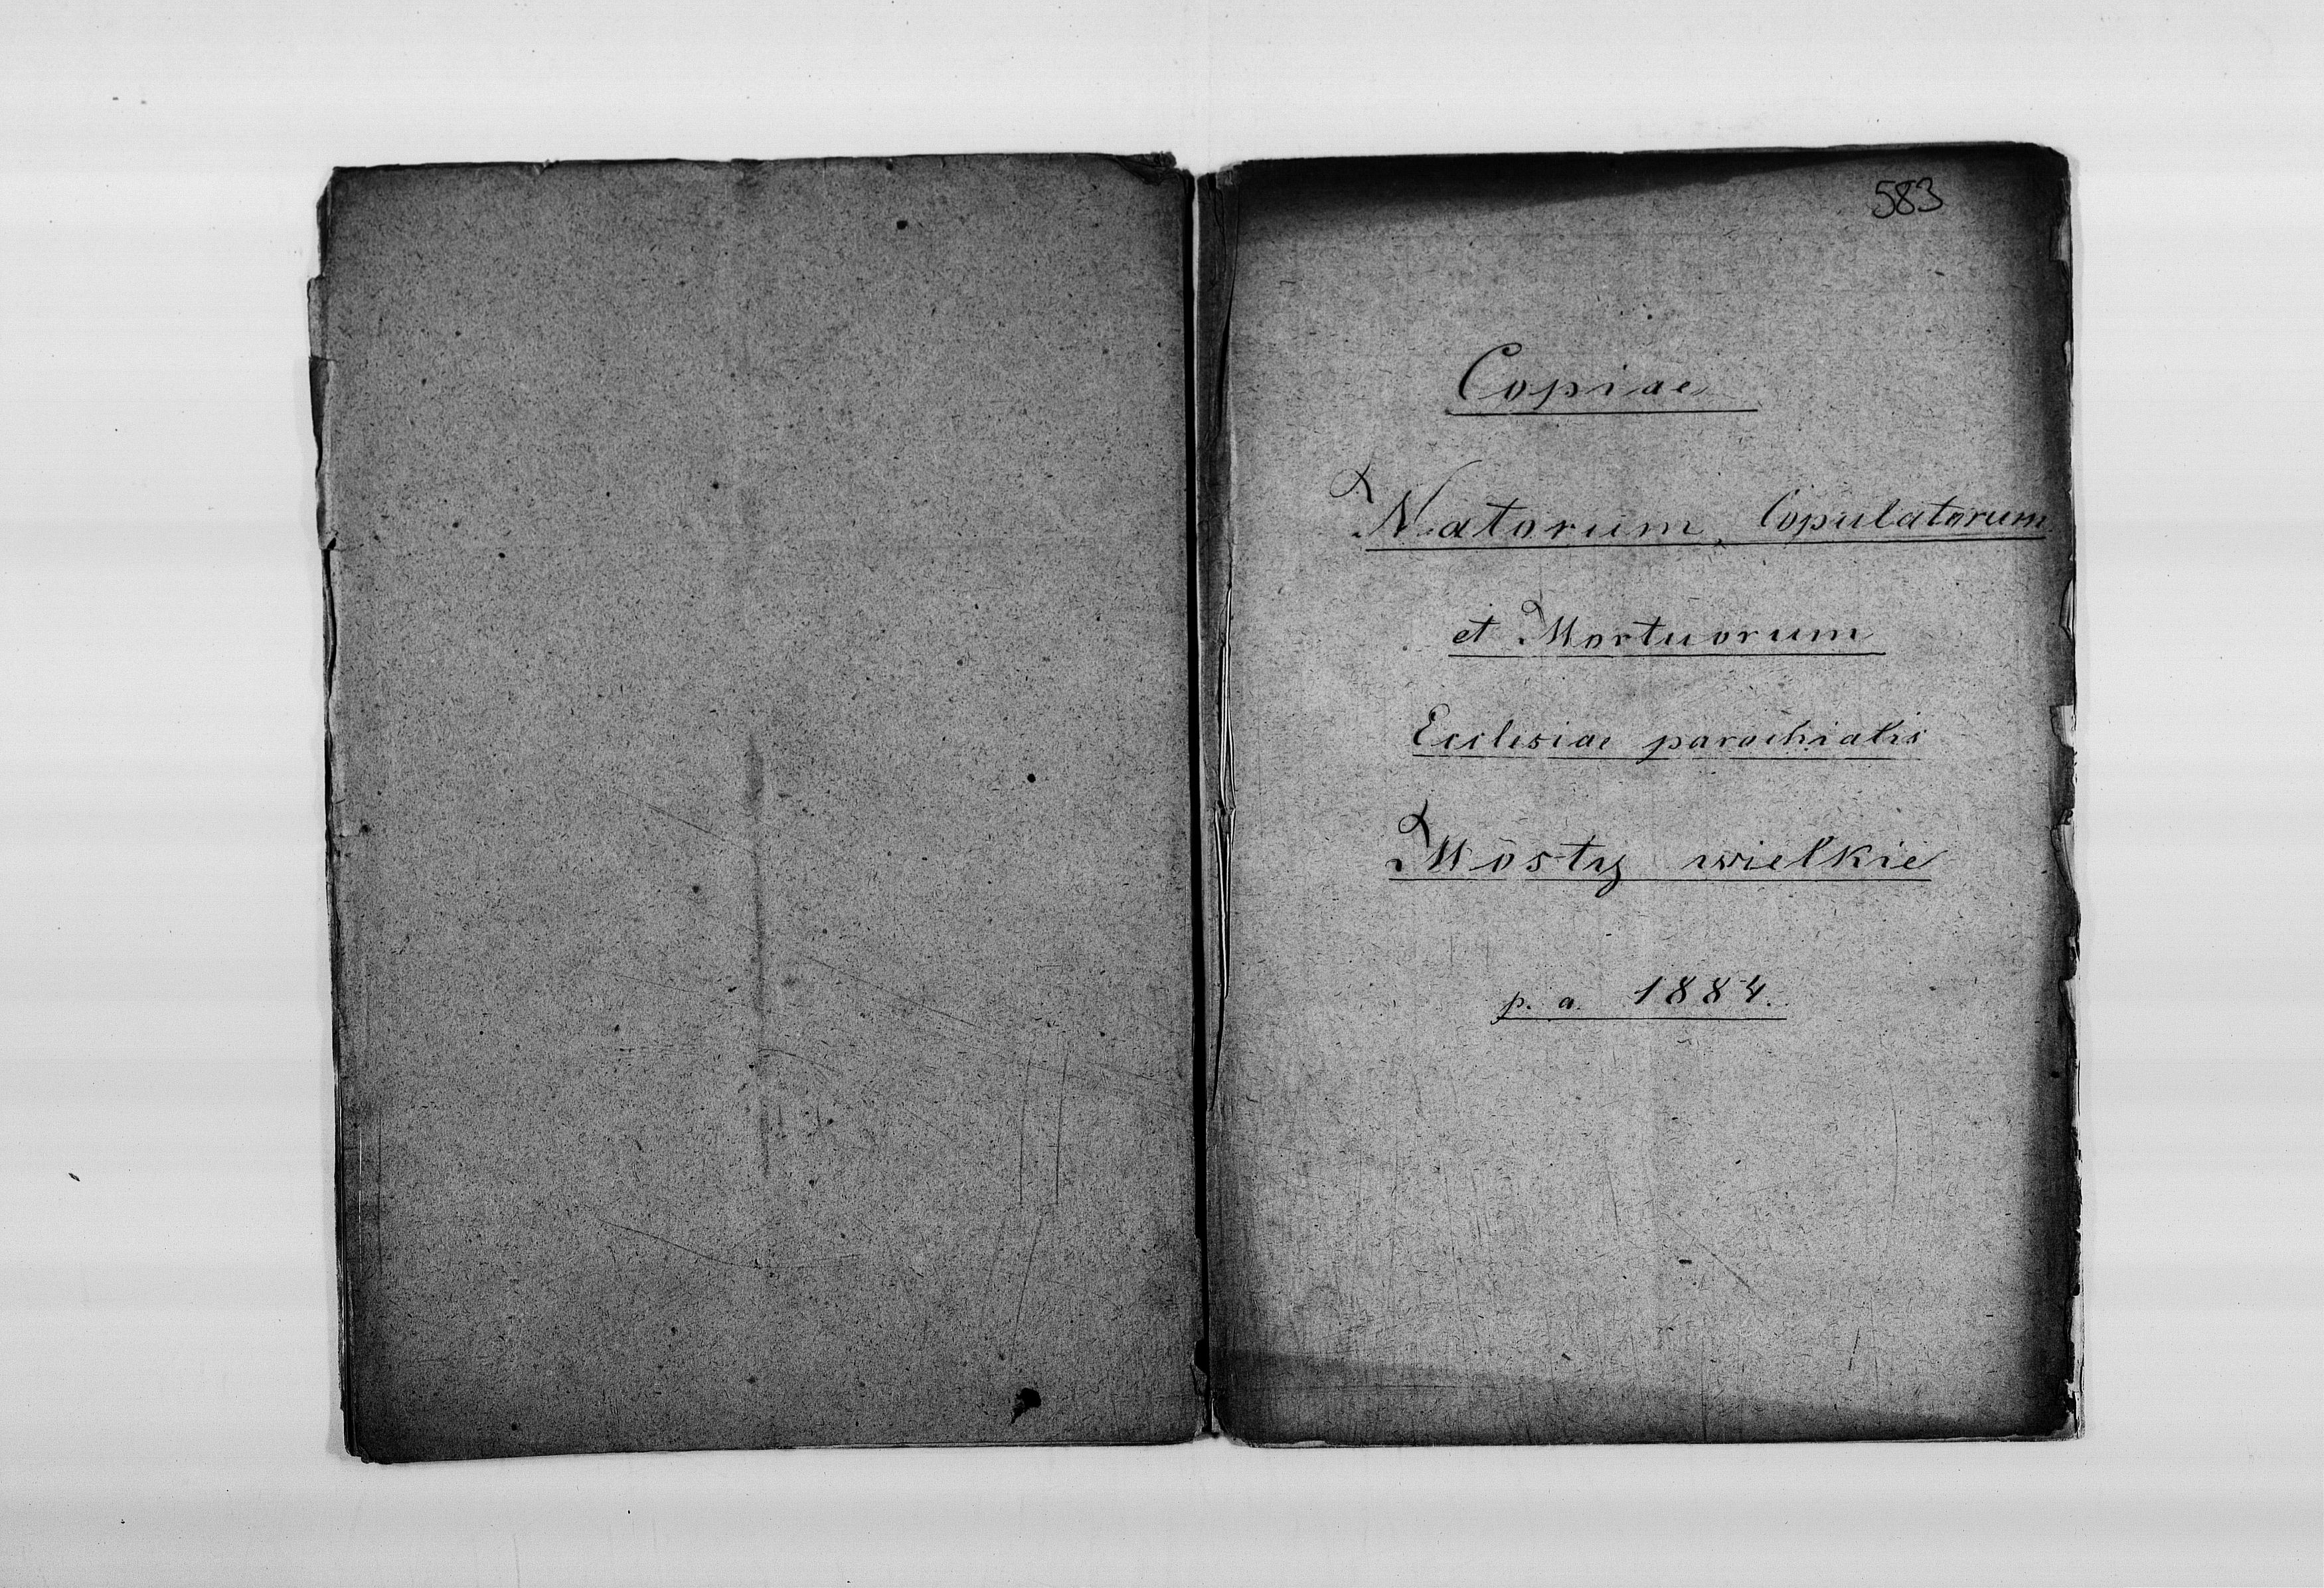 583
Copiae
Natorum, Copulatorum
et Mortuorum
Ecclesiae parochialis
Mosty wielkie
p. a. 1884.